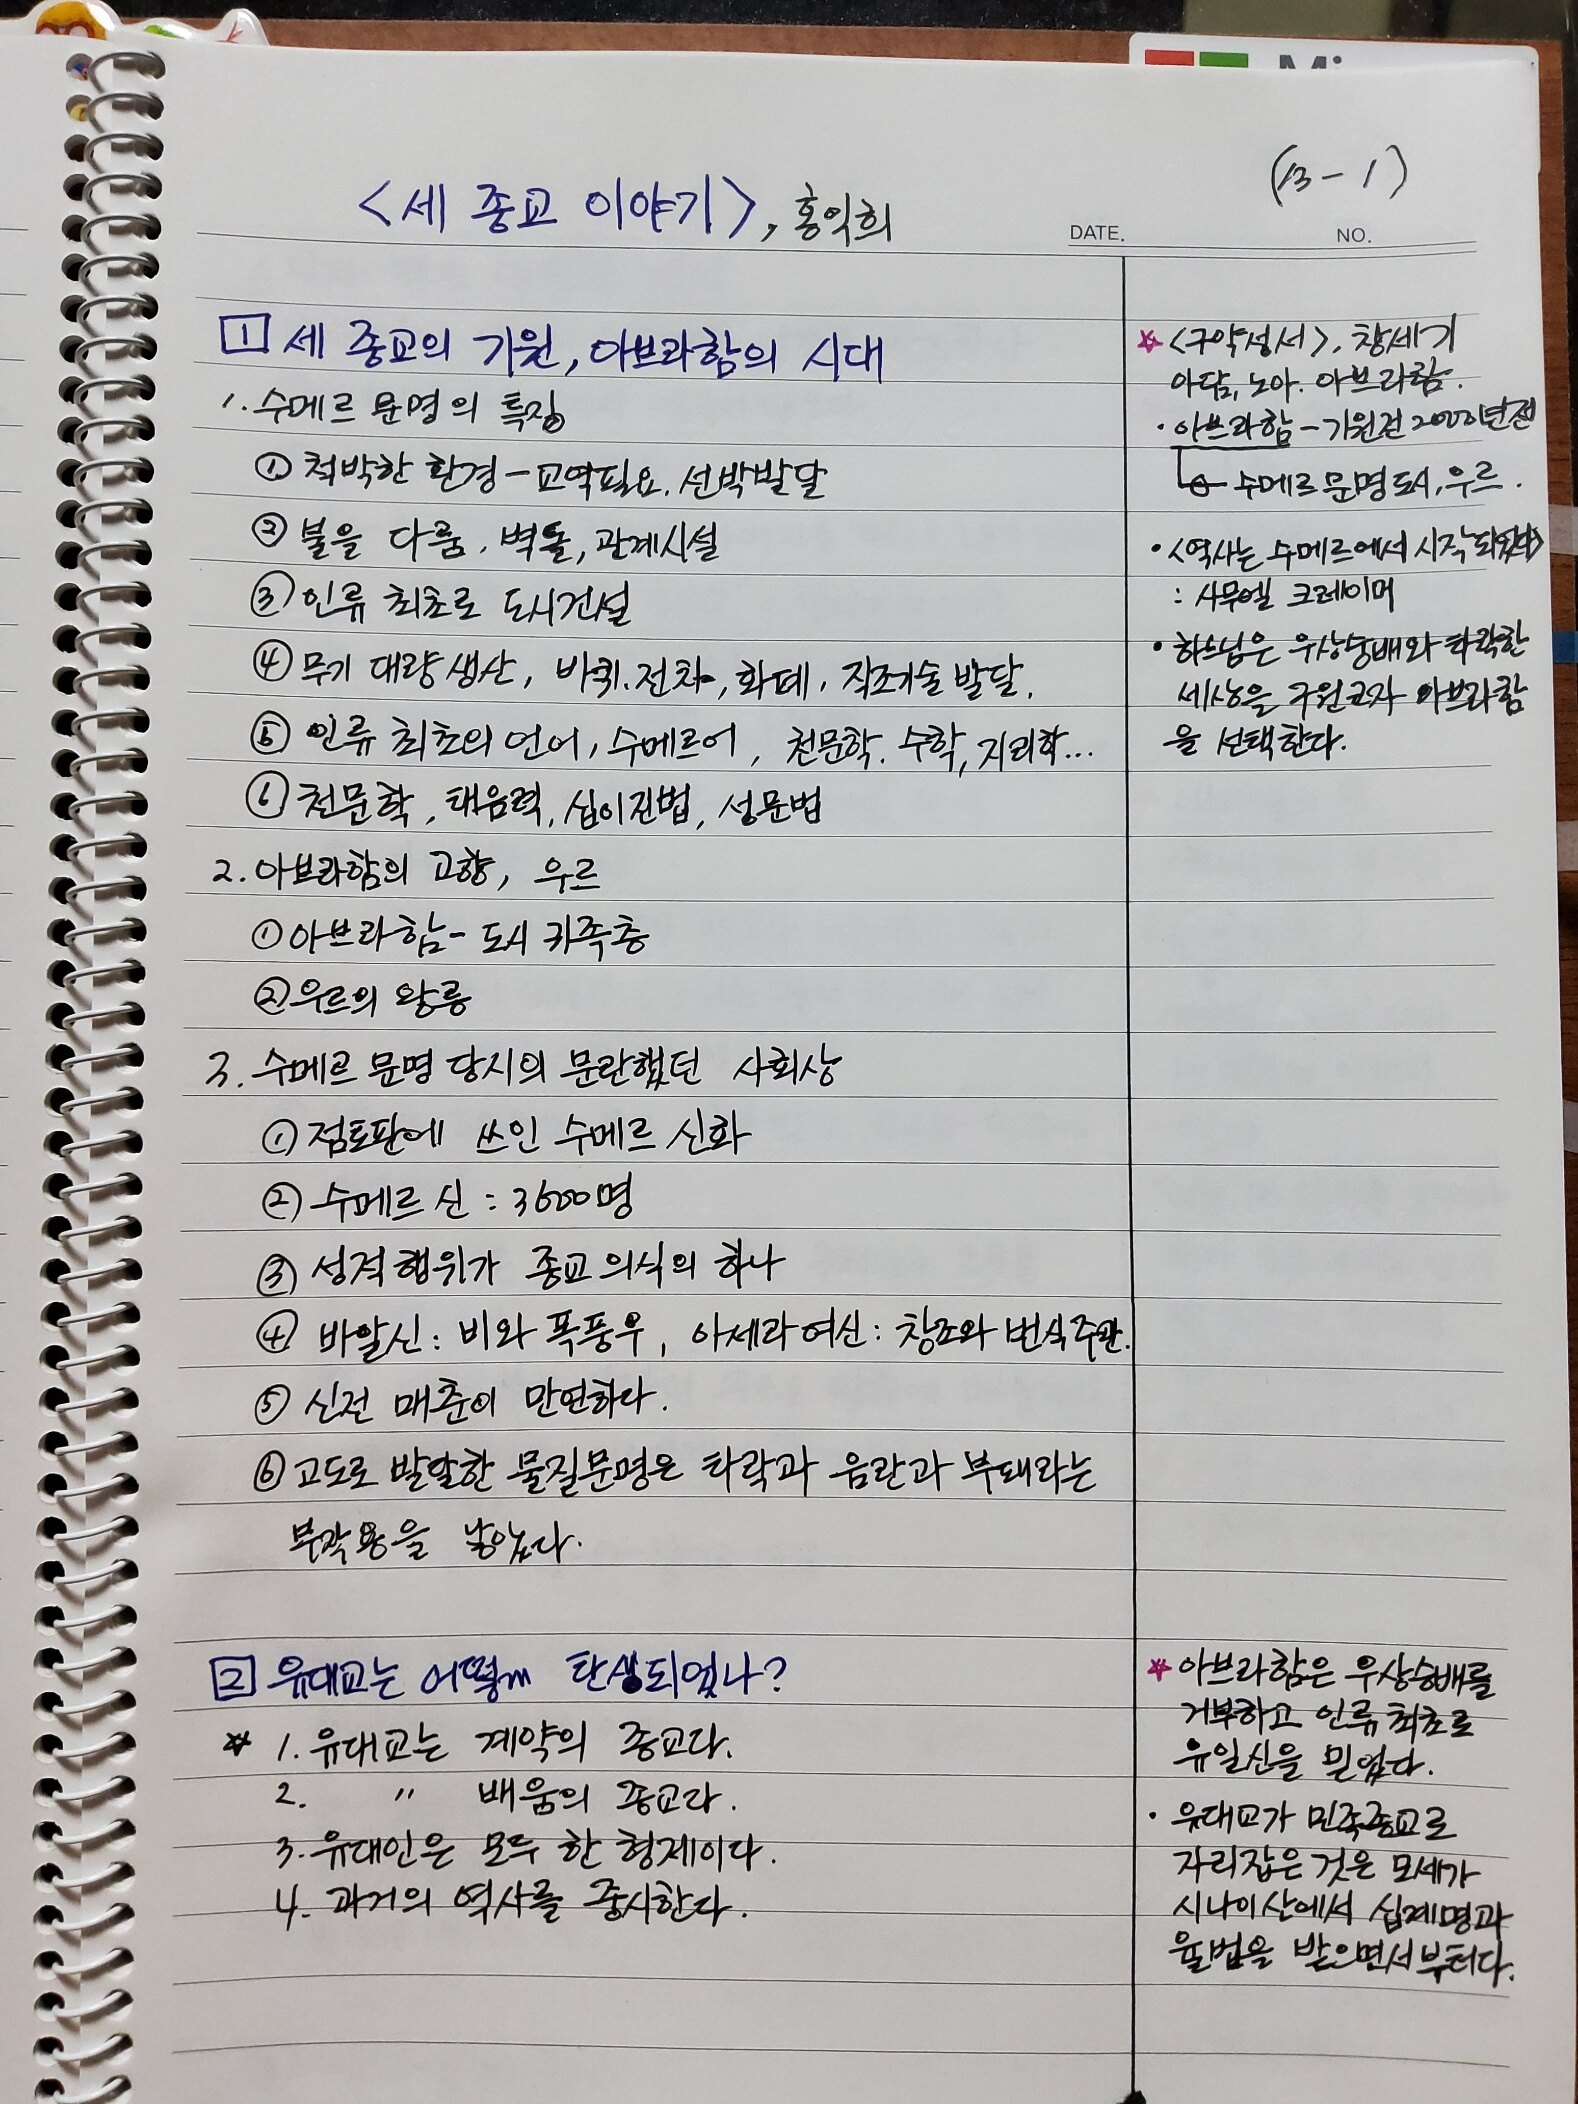 (13-1)
<세 종교 이야기>, 홍익희
DATE.
NO.
1 세 종교의 기원, 아브라함의 시대
1. 수메르 문명의 특징
① 척박한 환경 - 교역필요, 선박발달
② 불을 다룸, 벽돌, 관계시설
③ 인류 최초로 도시건설
④ 무기 대량생산, 바퀴, 전차, 화폐, 직조기술 발달.
⑤ 인류 최초의 언어, 수메르어, 천문학, 수학, 지리학...
⑥ 천문학, 태음력, 십이진법, 성문법
2. 아브라함의 고향, 우르
① 아브라함 - 도시 귀족층
② 우르의 왕릉
3. 수메르 문명 당시의 문란했던 사회상
① 점토판에 쓰인 수메르 신화
② 수메르 신 : 3600명
③ 성적행위가 종교의식의 하나
④ 바알신 : 비와 폭풍우, 아세라여신 : 창조와 번식주관.
⑤ 신전 매춘이 만연하다.
⑥ 고도로 발달한 물질문명은 타락과 음란과 부패라는
부작용을 낳았다.
2 유대교는 어떻게 탄생되었나?
* 1. 유대교는 계약의 종교다.
2. 〃 배움의 종교다.
3. 유대인은 모두 한 형제이다.
4. 과거의 역사를 중시한다.
* <구약성서>, 창세기
아담, 노아, 아브라함.
· 아브라함 - 기원전 2000년전
수메르 문명 도시, 우르.
· <역사는 수메르에서 시작되었다>
: 사무엘 크레이머
· 하느님은 우상숭배와 타락한
세상을 구원코자 아브라함
을 선택한다.
* 아브라함은 우상숭배를
거부하고 인류 최초로
유일신을 믿었다.
· 유대교가 민족종교로
자리잡은 것은 모세가
시나이산에서 십계명과
율법을 받으면서부터다.